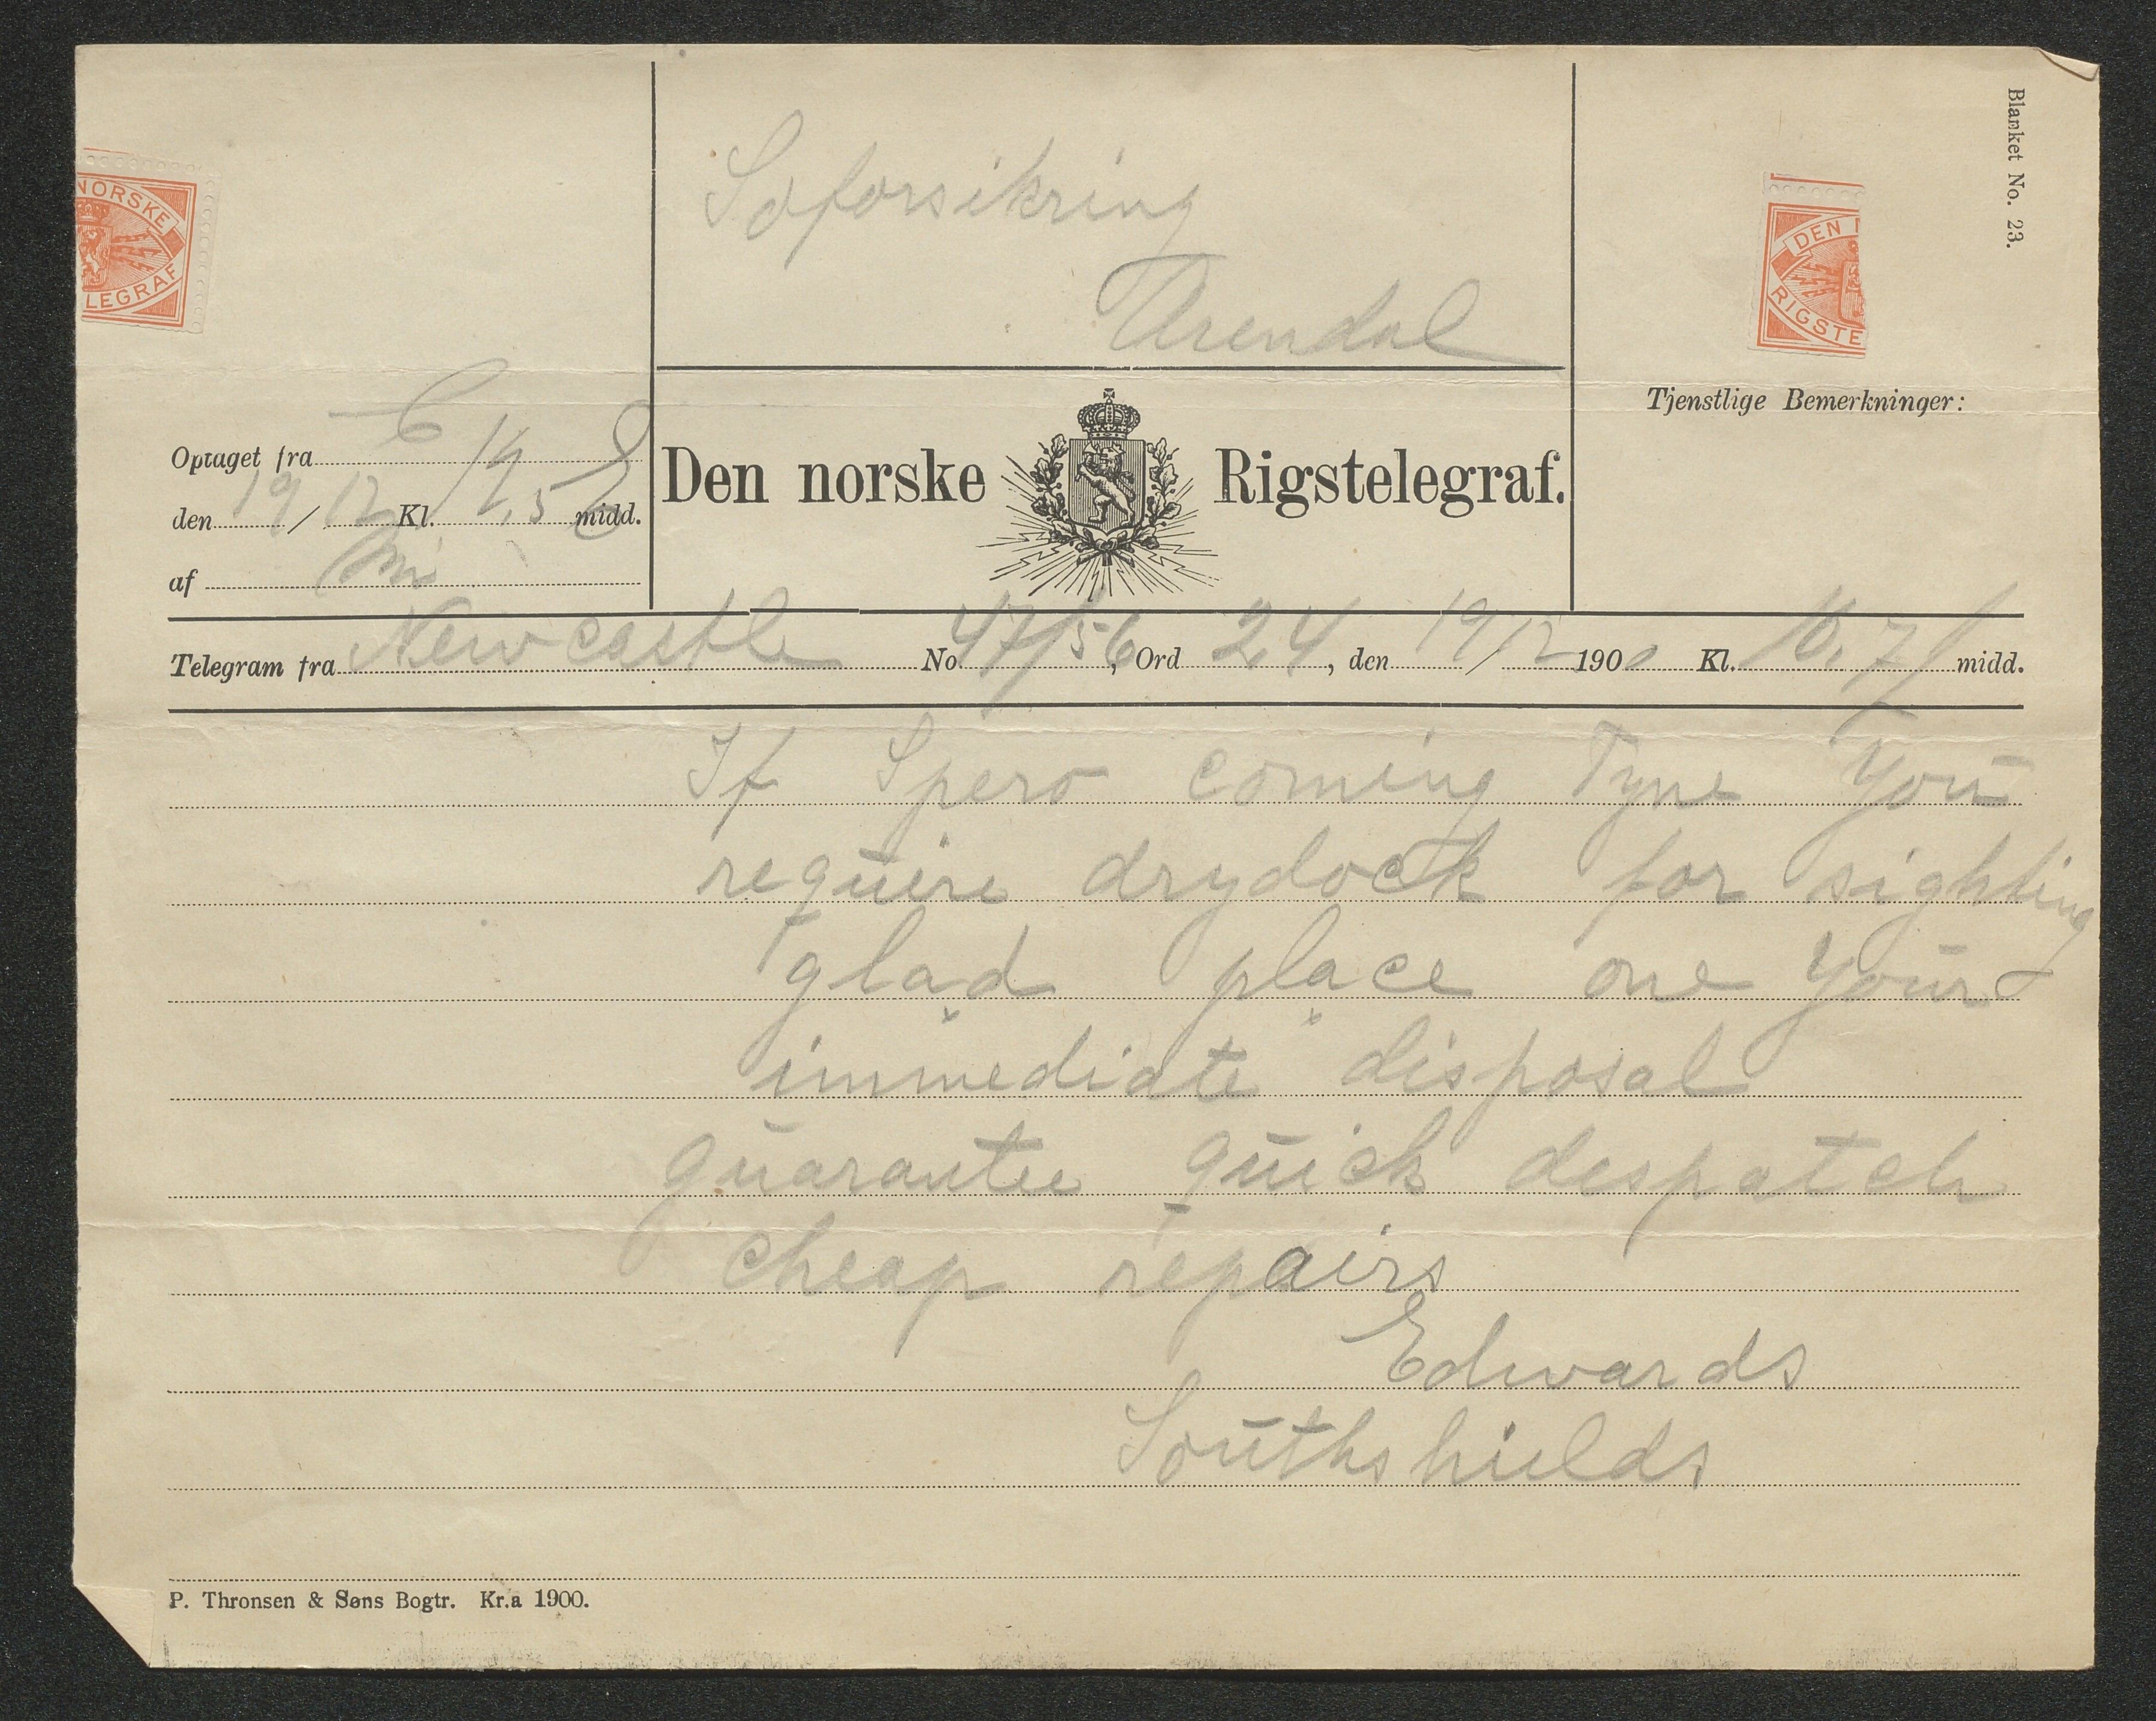 Blanket No. 23.
NORSKE
LEGRAF
Soforsikring
Arendal
DEN
RIGSTE
Tjenstlige Bemerkninger:
Optaget fra
den 19/12 Kl. midd.
af
Den norske Rigstelegraf.
Telegram fra Newcastle No. 47/56, Ord 24, den 19/12 1900 Kl. 10,7 midd.
If Spero coming Tyne you
require drydock for sighting
glad place one your
immediate disposal
guarantee quick despatch
cheap repairs
Edwards
Southshields
P. Thronsen & Søns Bogtr. Kr.a 1900.